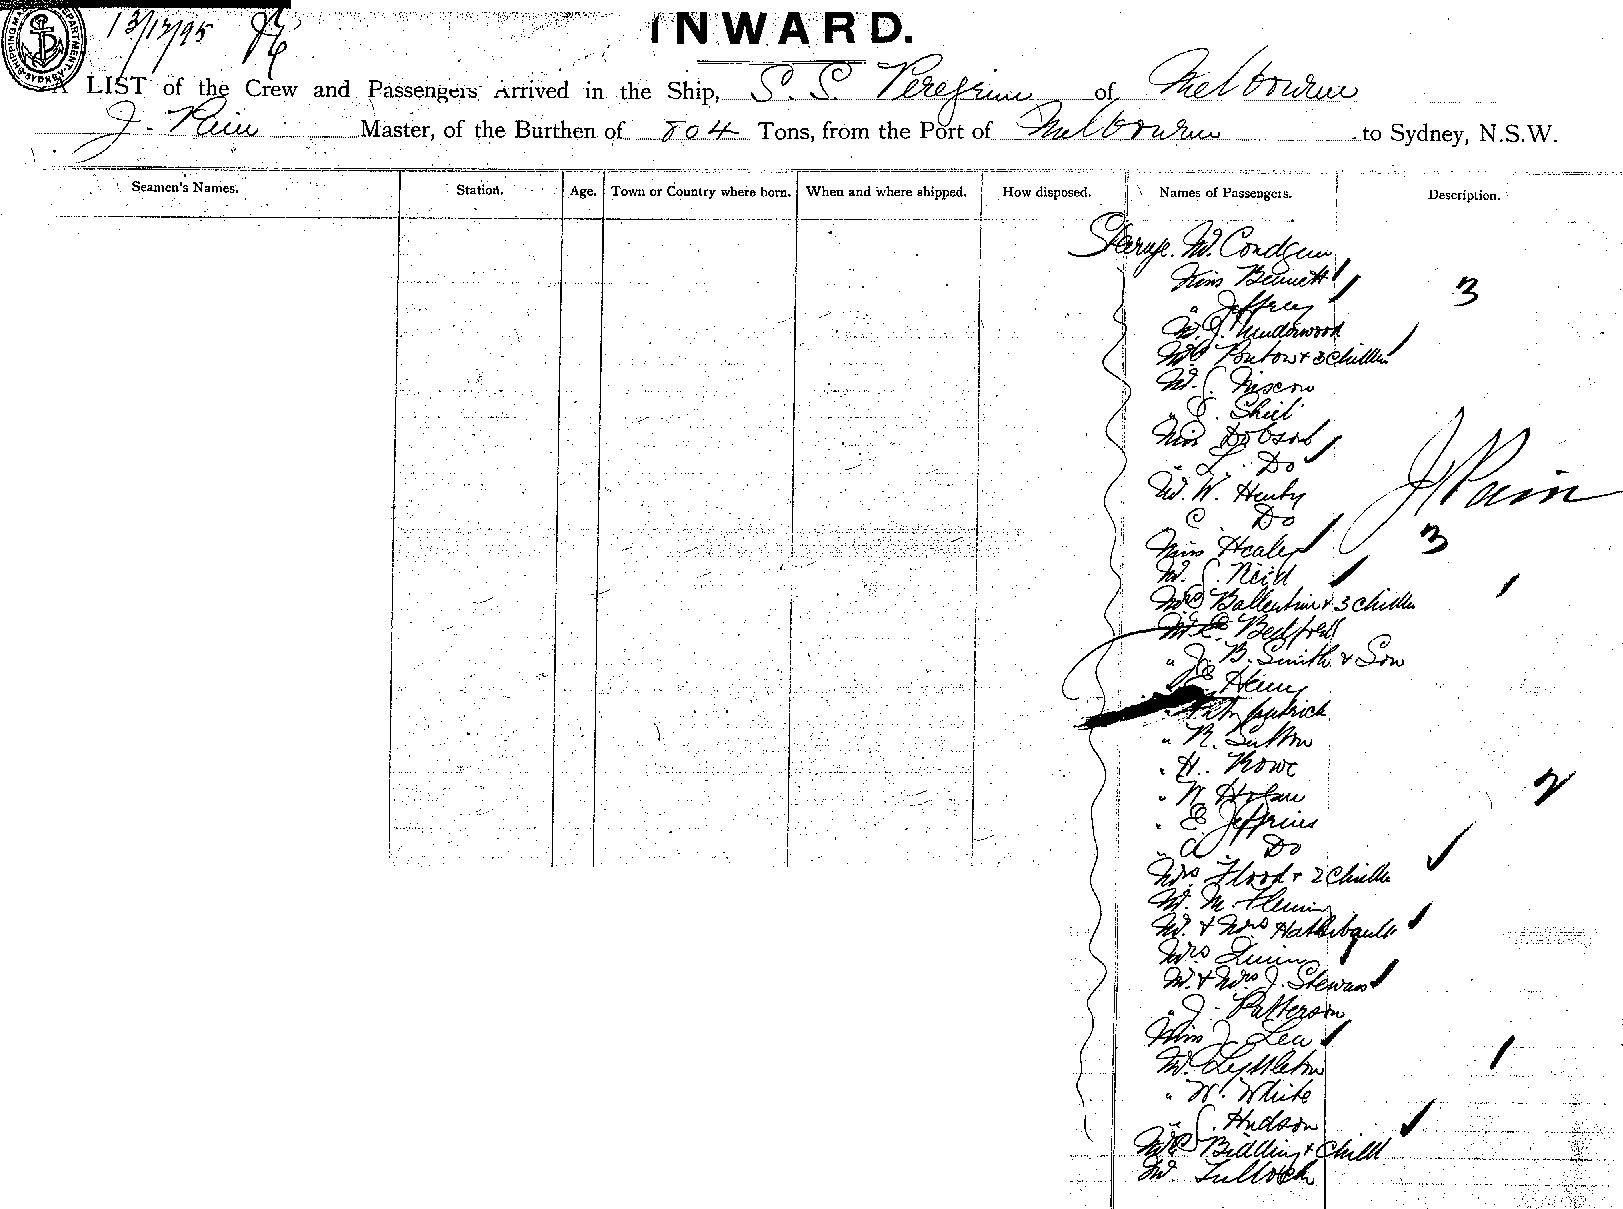 13/12/95
INWARD.
A LIST of the Crew and Passengers Arrived in the Ship, S. S. Peregrine of Melbourne
J. Pain Master, of the Burthen of 804 Tons, from the Port of Melbourne to Sydney, N.S.W.
Seamen's Names. Station. Age. Town or Country where born. When and where shipped. How disposed. Names of Passengers. Description.
Steerage. Mr. Condgen
Miss Bennett 3
" Jeffrey
Mr. J. Underwood
Mrs Ponton + 3 Children
Mr. J.
" J. Shiel
Miss Dobson
" L. Do
Mr. W. Henty J Pain
C. Do
Miss Healey 3
Mr. J. Reid
Mrs Ballentine + 3 Children 1
Mr. E. Bedford
" J. B. Smith & Son
Henry
patrick
" R. Sutton
" H. Rowe
" W Hogan 2
" E Jeffries
" A Do
Mrs Flood + 2 Children
Mr. M. Fleming
Mr. + Mrs
Mrs
Mr. + Mrs J. Stewart
" J. Patterson
Miss J. Lea
Mr. Lyttleton 1
" W. White
" J. Hudson
Mrs + Child
Mr Tulloch